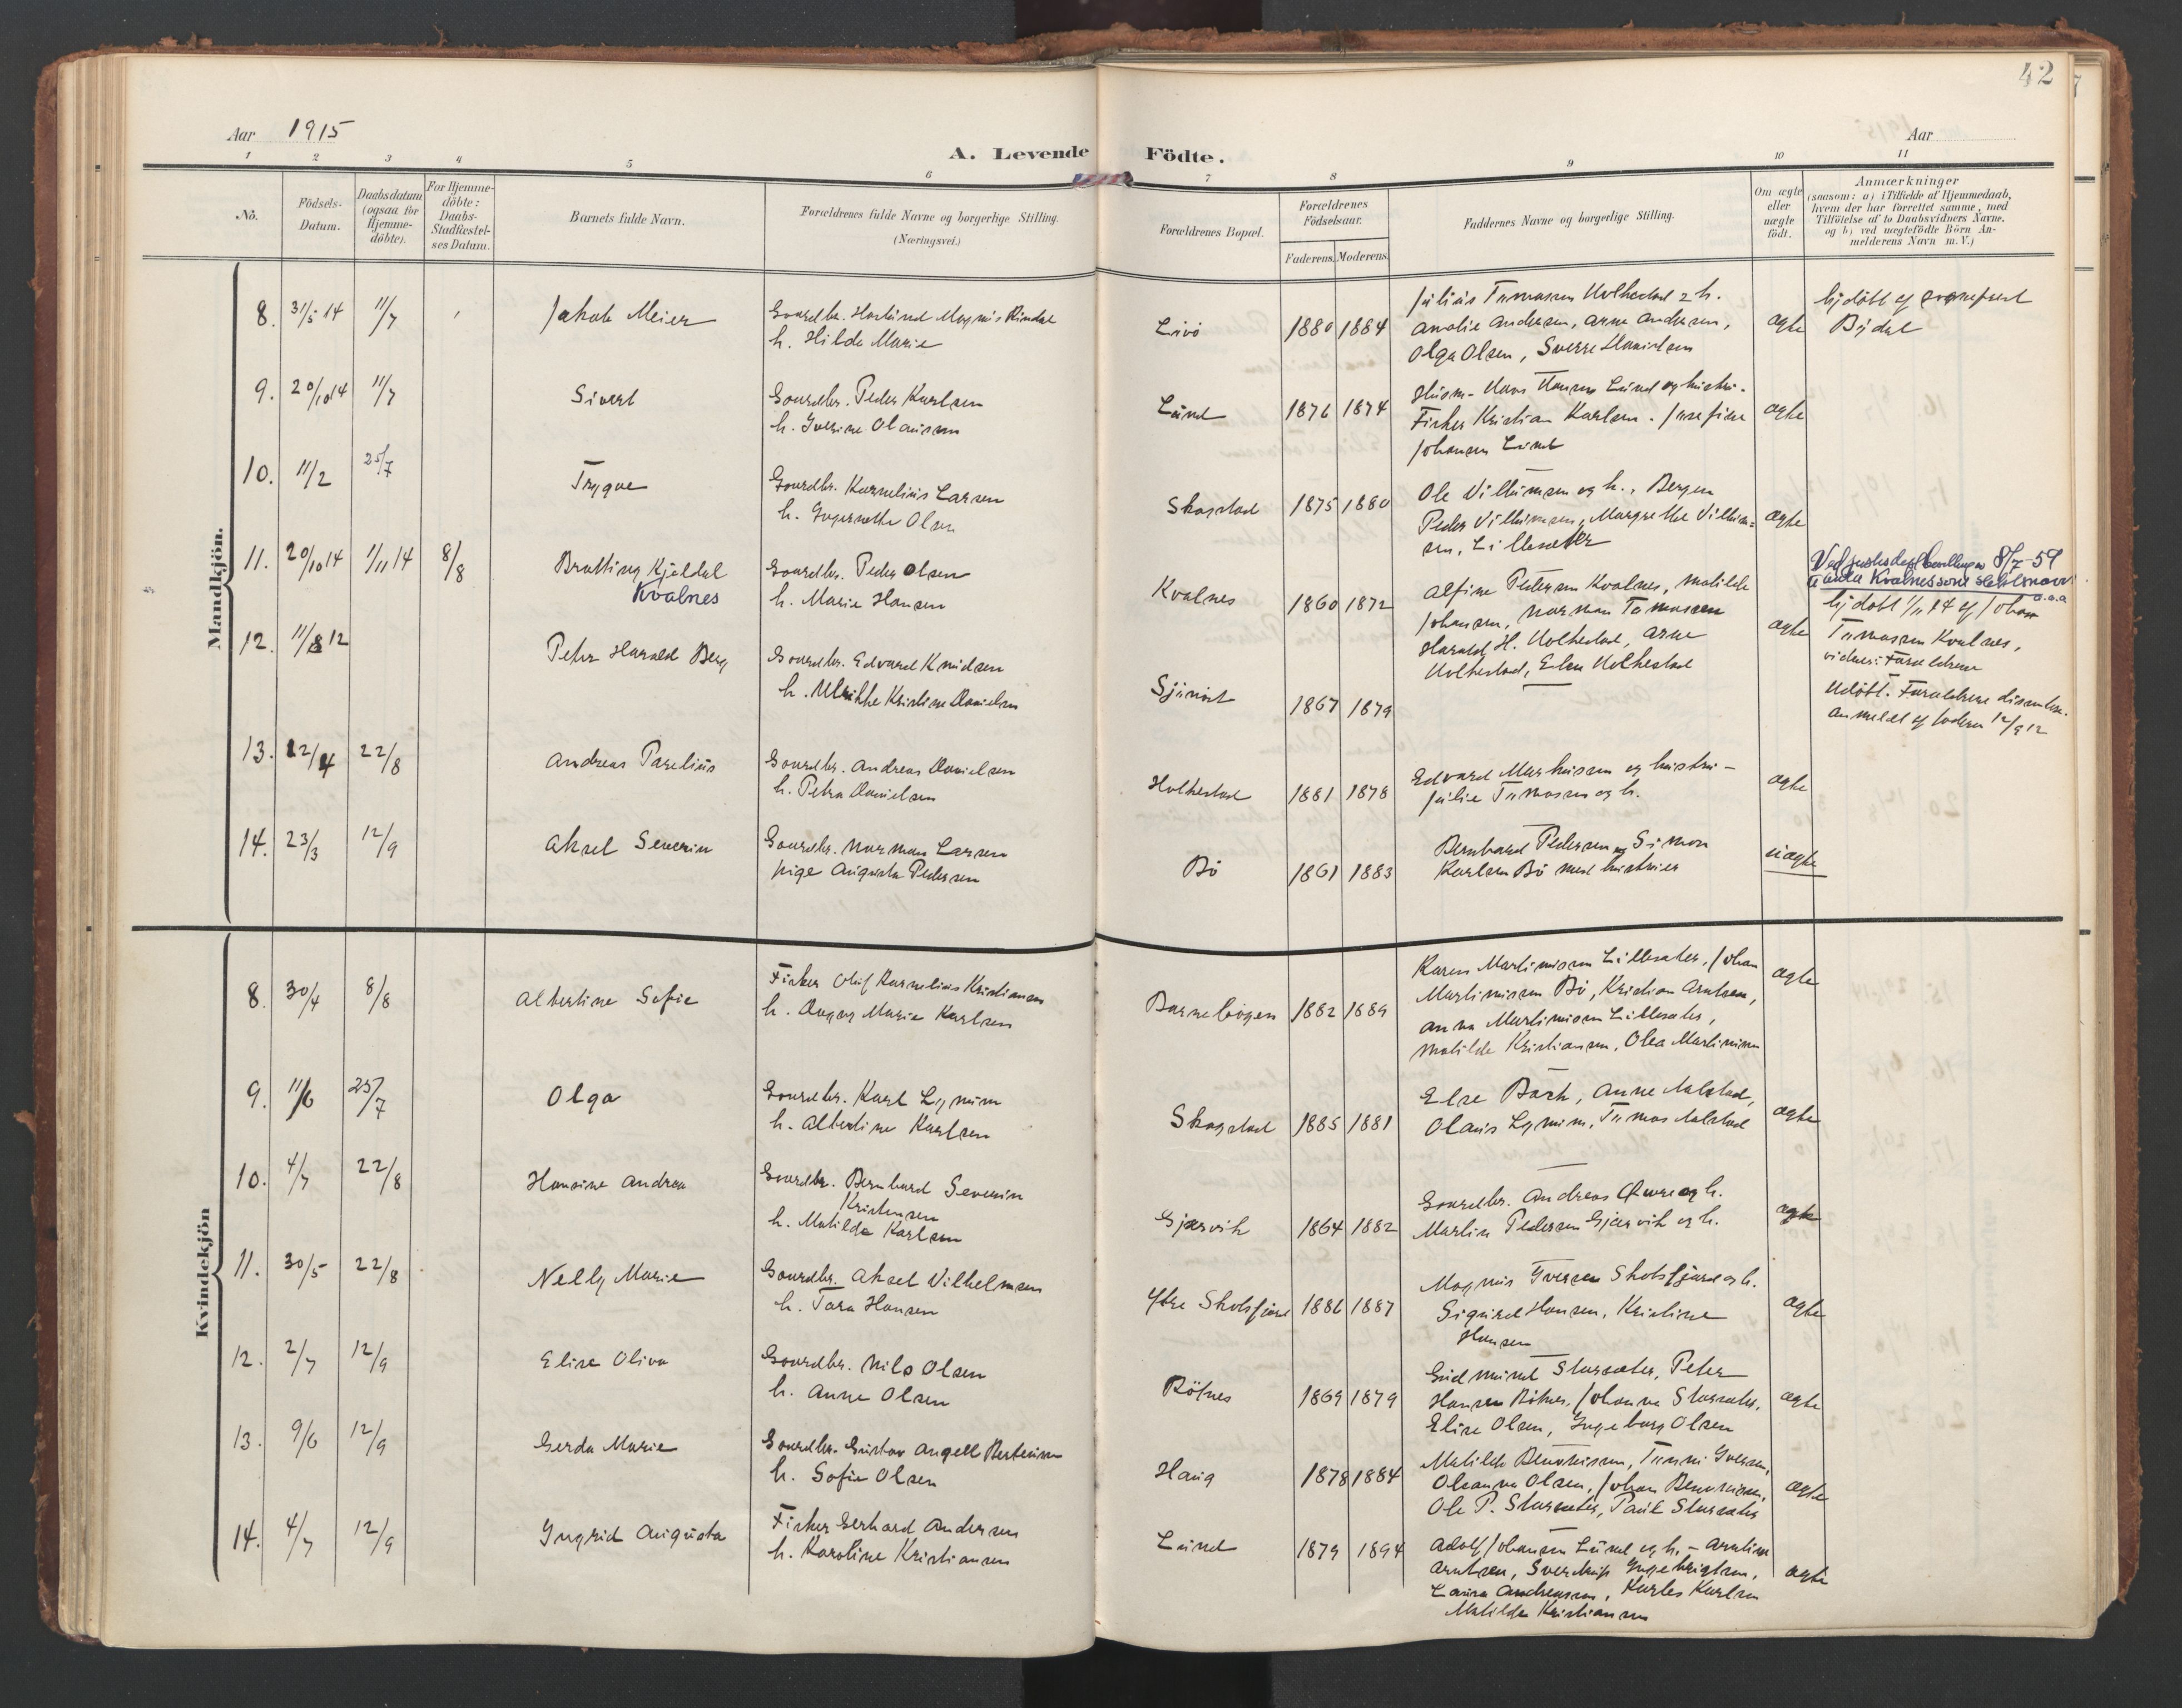 42
Aar 1915
A. Levende Födte.
Aar
1 2 3 4 5 6 7 8 9 10 11
Nö.
Födsels-Datum.
Daabsdatum (ogsaa for Hjemme-döbte).
For Hjemme-döbte: Daabs-Stadfæstel-ses Datum.
Barnets fulde Navn.
Forældrenes fulde Navne og borgerlige Stilling. (Næringsvei.)
Forældrenes Bopæl.
Forældrenes Födselsaar.
Faderens. Moderens.
Faddernes Navne og borgerlige Stilling.
Om ægte eller uægte födt.
Anmærkninger
(saasom: a) i Tilfælde af Hjemmedaab,
hvem der har forrettet samme, med
Tilföielse af to Daabsvidners Navne.
og b) ved uægtefödte Börn An-
melderens Navn m.V.)
Mandkjön.
8. 31/5 14 11/7 Jakob Meier
Gaardbr. Magnus Rindal
h. Hilda Marie
Livö 1880 1884
Julius Tomassen Holkestad
Amalie Andersen, Arne Andersen,
Olga Olsen, Sverre Danielsen
ægte
hjdöbt af
9. 20/10 14 11/7 Sivert
Gaardbr. Peder Karlsen
h. Iverine Olaisen
Lund 1876 1874
Husm. Hans Hansen Lund og hustru.
Fisker Kristian Karlsen. Josefine
Johansen Lund
ægte
10. 11/2 25/7 Trygve
Gaardbr. Kornelius Larsen
h. Olsen
Skogstad 1875 1880
Ole Villumsen og h., Bergen
Peder Villumsen, Margrethe Villum=
sen, Lillesæter
ægte
11. 20/10 14 1/11 14 8/8 Brotting Kjeldal
Kvalnes
Gaardbr. Peder Olsen
h. Marie Hansen
Kvalnes 1860 1872
Alfine Pedersen Kvalnes, Matilde
Johansen, Norman Tomassen
Harald H. Holkestad, Arne
Holkestad, Elen Holkestad
ægte
Ved justisdep. bevilling av 8/7-59
å anta Kvalnes som slektsnavn
a.a.a
hjdöbt 1/11 14 af Johan
Tomassen Kvalnes,
vidner: Forældrene
12. 11/8 12 Peter Harald Berg
Gaardbr. Edvard Knudsen
h. Ulrikke Kristine Danielsen
1867 1879
Udöbt. Forældrene dissentere.
anmeldt af faderen 12/9 12
13. 12/4 22/8 Andreas Parelius
Gaardbr. Andreas Danielsen
h. Petra Danielsen
Holkestad 1881 1878
Edvard Markussen og hustru -
Julie Tomassen og h.
ægte
14. 23/3 12/9 Aksel Severin
Gaardbr. Norman Larsen
pige Augusta Pedersen
Bö 1861 1883
Bernhard Pedersen og Simon
Karlsen Bö med hustruer
uægte
Kvindekjön
8. 30/4 8/8 Albertine Sofie
Fisker Oluf Kornelius Kristiansen
h. Dagny Marie Karlsen
Barnebogen 1882 1889
Karen Martinussen Lillesæter, Johan
Martinussen Bö, Kristian Arntsen,
Anna Martinussen Lillesæter,
Matilde Kristiansen, Olea Martinussen
ægte
9. 11/6 25/7 Olga
Gaardbr. Karl Lynum
h. Albertine Karlsen
Skogstad 1885 1881
Else Bach, Anne Aalstad,
Olaus Lynum, Tomas Aalstad
ægte
10. 4/7 22/8 Hansine Andrea
Gaardbr. Bernhard Severin
Kristensen
h. Matilda Karlsen
Gjærvik 1864 1882
Gaardbr. Andreas og h.
Martin Pedersen Gjærvik og h.
ægte
11. 30/5 22/8 Nelly Marie
Gaardbr. Aksel Vilhelmsen
h. Tora Hansen
Ytre Skotsfjord 1886 1887
Magnus Iversen Skotsfjord og h.
Sigurd Hansen, Kristine
Hansen
ægte
12. 2/7 12/9 Elise Oliva
Gaardbr. Nils Olsen
h. Anne Olsen
Bötnes 1869 1879
Gudmund Storsæter, Peter
Hansen Bötnes, Johanna Storsæter,
Elise Olsen, Ingeborg Olsen
ægte
13. 9/6 12/9 Gerda Marie
Gaardbr. Gustav Angell Bertinussen
h. Sofie Olsen
Haug 1878 1884
Matilde Benoniussen, Iversen,
Oleanna Olsen, Johan Benoniussen,
Ole P. Storsæter, Paul Storsæter
ægte
14. 4/7 12/9 Ingrid Augusta
Fisker Gerhard Andersen
h. Karoline Kristiansen
Lund 1879 1894
Adolf Johansen Lund og h. -
Arntsen, Ingebrigtsen,
Laura Andreassen, Karles Karlsen
Matilde Kristiansen
ægte